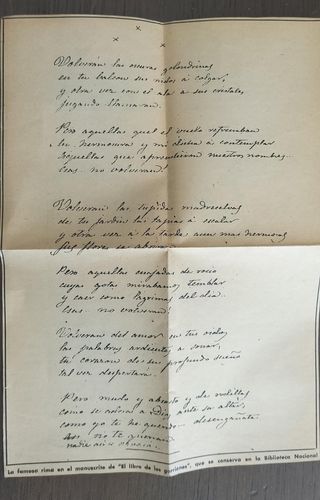 Volverán las oscuras golondrinas
en tu balcon sus nidos á colgar,
y otra vez con el ala a sus cristales
jugando llamaran.
Pero aquellas que el vuelo refrenaban
tu hermosura y mi dicha á contemplar
aquellas que aprendieron nuestros nombres
esas.. no volveran!
Volverán las tupidas madreselvas
de tu jardin las tapias á escalar
y otra vez á la tarde aun mas hermosas
sus flores se abriran
Pero aquellas cuajadas de rocio
cuyas gotas mirabamos temblar
y caer como lagrimas del dia..
esas.. no volveran!
Volveran del amor en tus oidos
las palabras ardientes á sonar,
tu corazon de su profundo sueño
tal vez despertará
Pero mudo y absorto y de rodillas
como se adora á Dios ante su altar,
como yo te he querido.. desengañate
no te querrán
La famosa rima en el manuscrito de "El libro de los gorriones", que se conserva en la Biblioteca Nacional